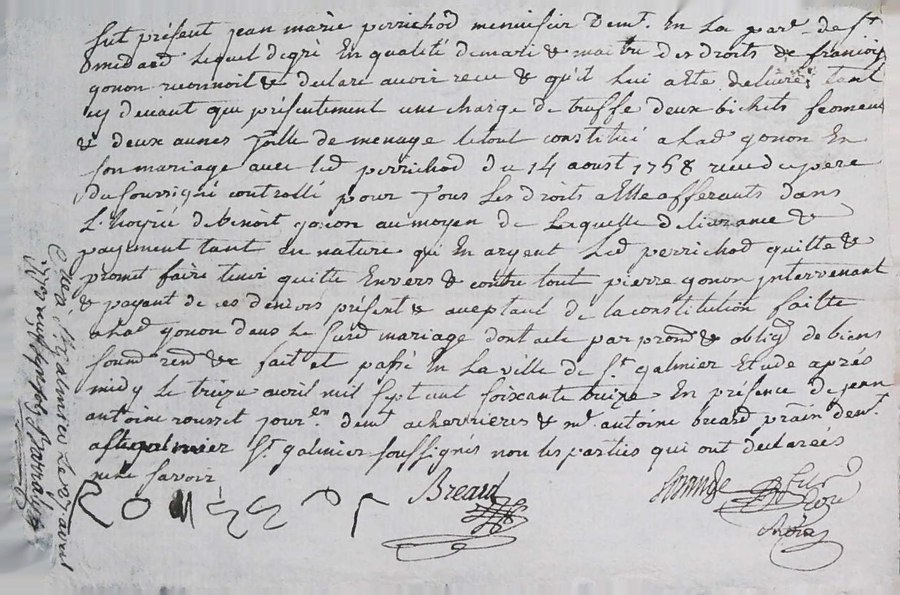 fut présent jean marie perrichod menuisier demt. En La par. de st.
midard Lequel degré En qualité de mari & maitre des droits de francoise
gonon reconnoit & declare avoir recu & qu'il Lui a Eté delivré tant
cy devant que présentement une charge de truffe deux bichets froment
& deux aunes Toille de menage le tout constitué a lad gonon En
son mariage avec led perrichod du 14 aoust 1768 recu du pere
du soussigné controllé pour Tous Les droits a Elle afferants dans
L'hoyrié de benoit gonon au moyen de Laquelle delivrance &
payement tant En nature qu'En argent Led perrichod quitte &
promet faire tenir quitte Envers & contre tout pierre gonon jntervenant
& payant de ces deniers présent & aceptant de la constitution faitte
a lad gonon dans Le susd mariage dont acte par prom & oblig de biens
soum rend &c fait et passé En La ville de st. galmier Etude aprés
midy Le treize avril mil sept cent soixante treize En présence de jean
antoine rousset jour demt a chevrieres & mr. antoine breard prain demt.
a st galmier soussignés non les parties qui ont declarées
ne le savoir
Breard
st galmier Le